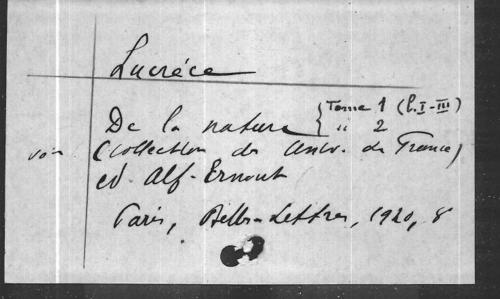 Lucrèce
De la nature { Tome 1 (l. I-III)
" 2
voir (Collection des Univ. de France)
ed. Alf. Ernout
Paris, Belles-Lettres, 1920, 8°